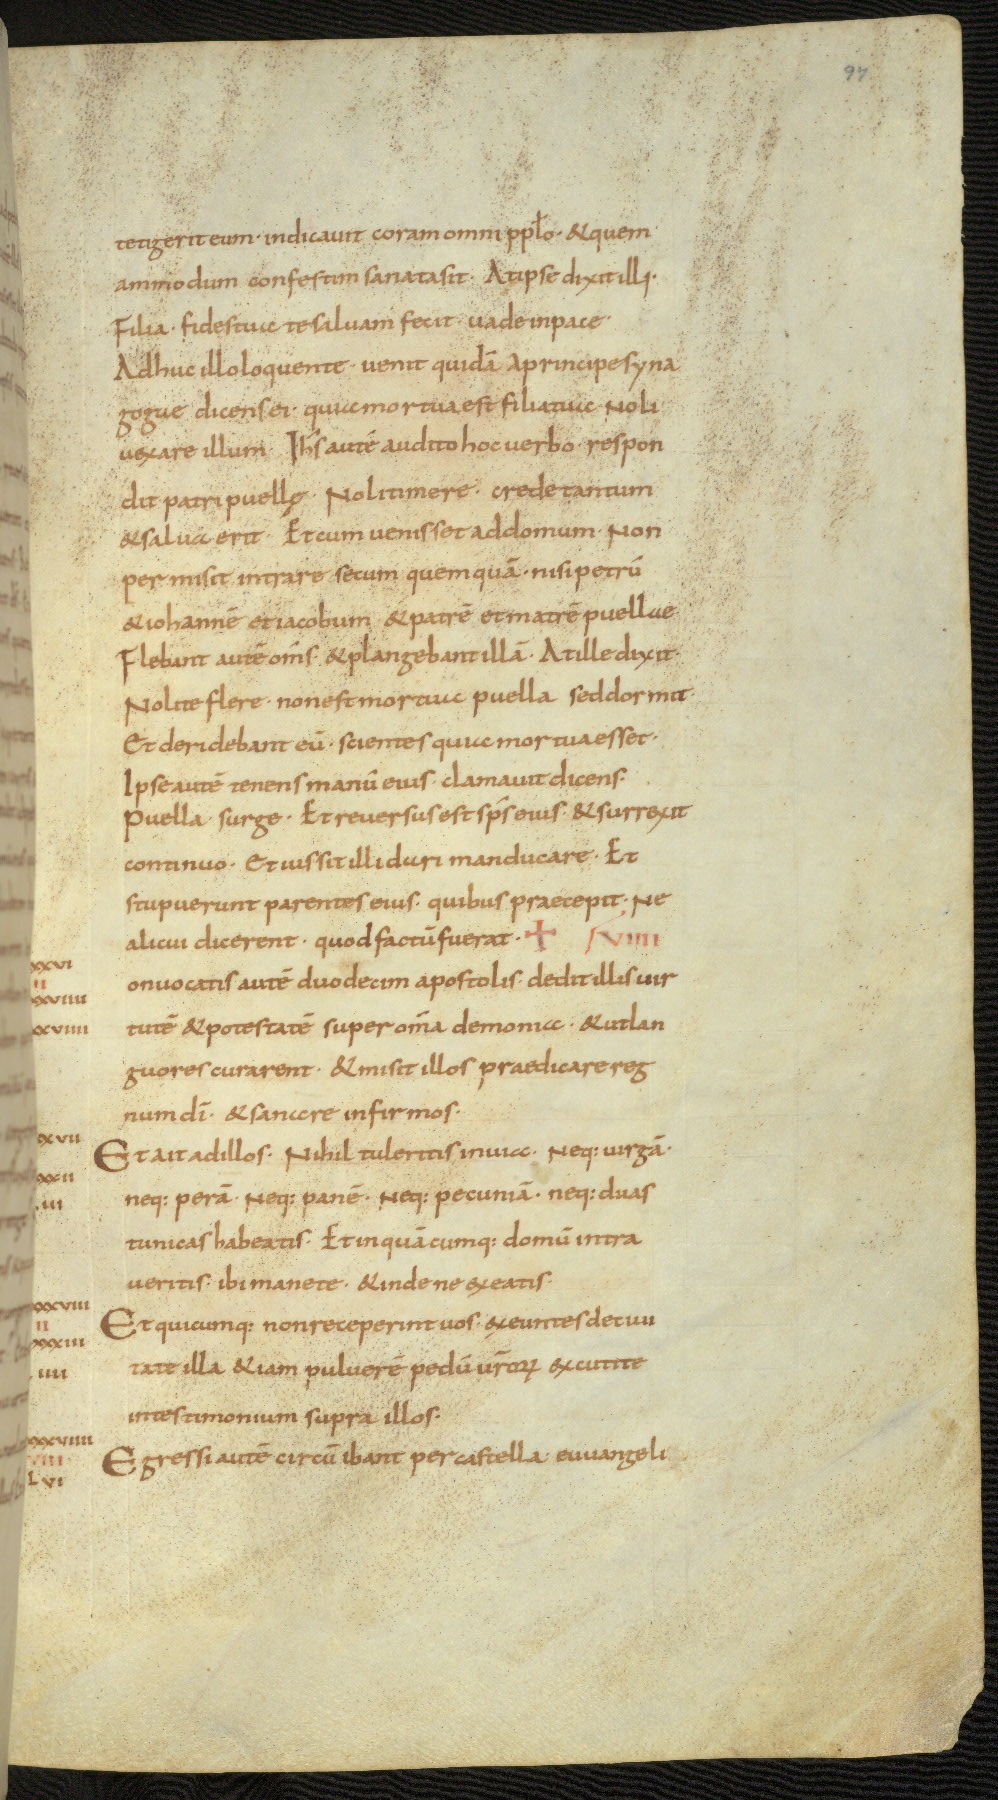 97
tetigerit eum · indicauit coram omni pplo · &quem
ammodum confestim sanata sit · At ipse dixit illi ·
Filia · fides tua te saluam fecit · uade in pace ·
Adhuc illo loquente · uenit quidā a principe syna
gogae dicens ei · quia mortua est filia tua · Noli
uexare illum · Ihs autē audito hoc uerbo · respon
dit patri puellę · Noli timere · crede tantum
&salua erit · Et cum uenisset ad domum · Non
permisit intrare secum quemquā · nisi petrū
&iohannē et iacobum &patrē et matrē puellae
Flebant autē oms̄ · &plangebant illā · At ille dixit ·
Nolite flere · non est mortua puella sed dormit ·
Et deridebant eū · scientes quia mortua esset ·
Ipse autē tenens manū eius · clamauit dicens ·
Puella · surge · Et reuersus est sps̄ eius · &surrexit
continuo · Et iussit illi dari manducare · Et
stupuerunt parentes eius · quibus praecepit · Ne
alicui dicerent · quod factū fuerat · +
onuocatis autē duodecim apostolis · dedit illis uir
tutē &potestatē super om̄a demonia · &ut lan
guores curarent · &misit illos praedicare reg
num dī · &sanare infirmos ·
Et ait ad illos · Nihil tuleritis in uia · Neq: uirgā ·
neq: perā · Neq: panē · Neq: pecuniā · neq: duas
tunicas habeatis · Et in quācumq: domū intra
ueritis · ibi manete · &inde ne exeatis ·
Et quicumq: non receperint uos · exeuntes de ciui
tate illa &iam puluerē pedū ur̄orꝝ excutite
in testimonium supra illos ·
Egressi autē circū ibant per castella euuangeli